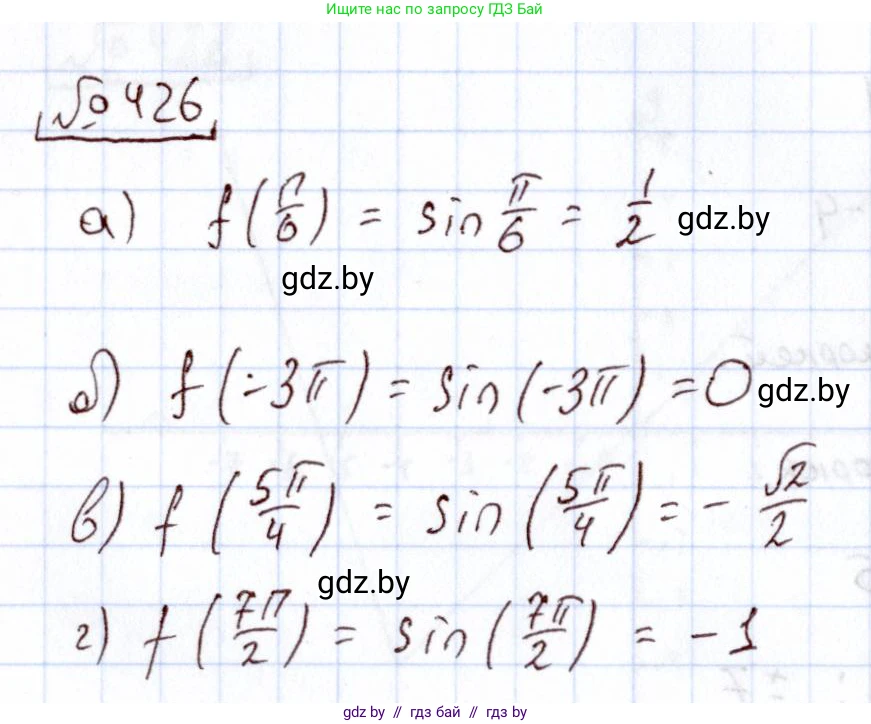 Ищите нас по запросу ГДЗ Бай
№ 426
а) f(π/6) = sin π/6 = 1/2 gdz.by
gdz.by
б) f(-3π) = sin(-3π) = 0 gdz.by
в) f(5π/4) = sin(5π/4) = -√2/2
gdz.by
г) f(7π/2) = sin(7π/2) = -1
gdz.by // гдз бай // gdz.by